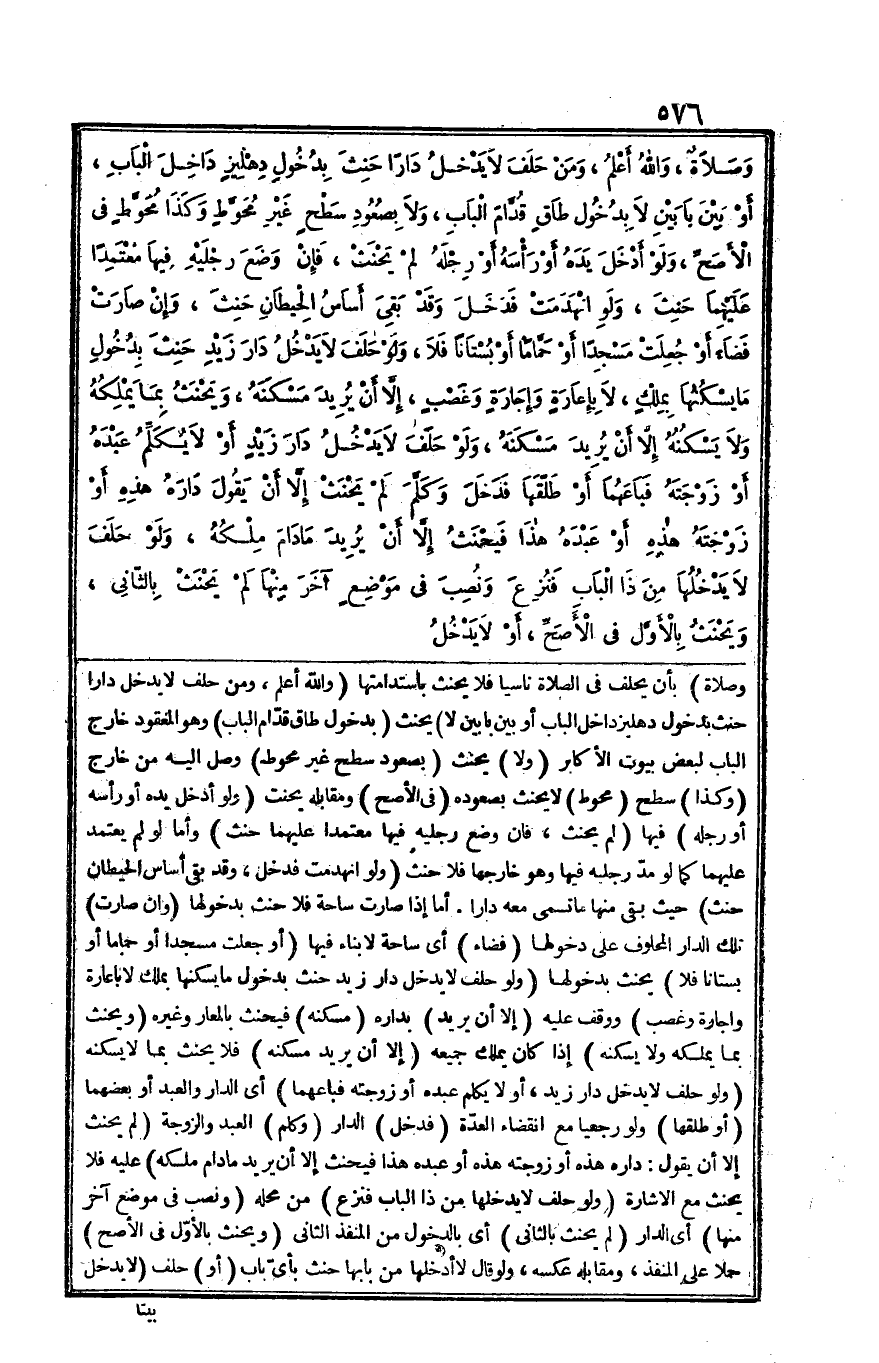 ٥٧٦
وَصَلَاةٌ، وَاللهُ أَعْلَمُ، وَمَنْ حَلَفَ لَايَدْخُلُ دَارًا حَنِثَ بِدُخُولِ دِهْلِيزٍ دَاخِلَ الْبَابِ،
أَوْ بَيْنَ بَابَيْنِ لَا بِدُخُولِ طَاقٍ قُدَّامَ الْبَابِ، وَلَا بِصُعُودِ سَطْحٍ غَيْرِ مُحَوَّطٍ وَكَذَا مُحَوَّطٌ فِى
الْأَصَحِّ، وَلَوْ أَدْخَلَ يَدَهُ أَوْ رَأْسَهُ أَوْ رِجْلَهُ لَمْ يَحْنَثْ، فَإِنْ وَضَعَ رِجْلَيْهِ فِيهَا مُعْتَمِدًا
عَلَيْهِمَا حَنِثَ، وَلَوِ انْهَدَمَتْ فَدَخَلَ وَقَدْ بَقِىَ أَسَاسُ الْحِيطَانِ حَنِثَ، وَإِنْ صَارَتْ
فَضَاءً أَوْ جُعِلَتْ مَسْجِدًا أَوْ حَمَّامًا أَوْ بُسْتَانًا فَلَا، وَلَوْ حَلَفَ لَايَدْخُلُ دَارَ زَيْدٍ حَنِثَ بِدُخُولِ
مَايَسْكُنُهَا بِمِلْكٍ، لَا بِإِعَارَةٍ وَإِجَارَةٍ وَغَصْبٍ، إِلَّا أَنْ يُرِيدَ مَسْكَنَهُ، وَيَحْنَثُ بِمَا يَمْلِكُهُ
وَلَا يَسْكُنُهُ إِلَّا أَنْ يُرِيدَ مَسْكَنَهُ، وَلَوْ حَلَفَ لَايَدْخُلُ دَارَ زَيْدٍ أَوْ لَايُكَلِّمُ عَبْدَهُ
أَوْ زَوْجَتَهُ فَبَاعَهُمَا أَوْ طَلَّقَهَا فَدَخَلَ وَكَلَّمَ لَمْ يَحْنَثْ إِلَّا أَنْ يَقُولَ دَارَهُ هٰذِهِ أَوْ
زَوْجَتَهُ هٰذِهِ أَوْ عَبْدَهُ هٰذَا فَيَحْنَثُ إِلَّا أَنْ يُرِيدَ مَادَامَ مِلْكُهُ، وَلَوْ حَلَفَ
لَايَدْخُلُهَا مِنْ ذَا الْبَابِ فَنُزِعَ وَنُصِبَ فِى مَوْضِعٍ آخَرَ مِنْهَا لَمْ يَحْنَثْ بِالثَّانِى،
وَيَحْنَثُ بِالْأَوَّلِ فِى الْأَصَحِّ، أَوْ لَايَدْخُلُ
وصلاة) بأن يحلف فى الصلاة ناسيا فلا يحنث باستدامتها (والله أعلم، ومن حلف لايدخل دارا
حنث بدخول دهليز داخل الباب أو بين بابين لا) يحنث (بدخول طاق قدّام الباب) وهو المعقود خارج
الباب لبعض بيوت الأكابر (ولا) يحنث (بصعود سطح غير محوط) وصل اليه من خارج
(وكذا) سطح (محوط) لايحنث بصعوده (فى الأصح) ومقابله يحنث (ولو أدخل يده أو رأسه
أو رجله) فيها (لم يحنث، فان وضع رجليه فيها معتمدا عليهما حنث) وأما لو لم يعتمد
عليهما كما لو مدّ رجليه فيها وهو خارجها فلا حنث (ولو انهدمت فدخل، وقد بقى أساس الحيطان
حنث) حيث بقى منها ماتسمى معه دارا. أما إذا صارت ساحة فلا حنث بدخولها (وان صارت)
تلك الدار المحلوف على دخولها (فضاء) أى ساحة لابناء فيها (أو جعلت مسجدا أو حماما أو
بستانا فلا) يحنث بدخولها (ولو حلف لايدخل دار زيد حنث بدخول مايسكنها بملك لاباعارة
واجارة وغصب) ووقف عليه (إلا أن يريد) بداره (مسكنه) فيحنث بالمعار وغيره (ويحنث
بما يملكه ولا يسكنه) إذا كان يملك جميعه (إلا أن يريد مسكنه) فلا يحنث بما لايسكنه
(ولو حلف لايدخل دار زيد، أو لا يكلم عبده أو زوجته فباعهما) أى الدار والعبد أو بعضهما
(أو طلقها) ولو رجعيا مع انقضاء العدّة (فدخل) الدار (وكلم) العبد والزوجة (لم يحنث
إلا أن يقول: داره هذه أو زوجته هذه أو عبده هذا فيحنث إلا أن يريد مادام ملكه) عليه فلا
يحنث مع الاشارة (ولو حلف لايدخلها من ذا الباب فنزع) من محله (ونصب فى موضع آخر
منها) أى الدار (لم يحنث بالثانى) أى بالدخول من المنفذ الثانى (ويحنث بالأوّل فى الأصح)
حملا على المنفذ، ومقابله عكسه، ولو قال لاأدخلها من بابها حنث بأىّ باب (أو) حلف (لايدخل
بيتا